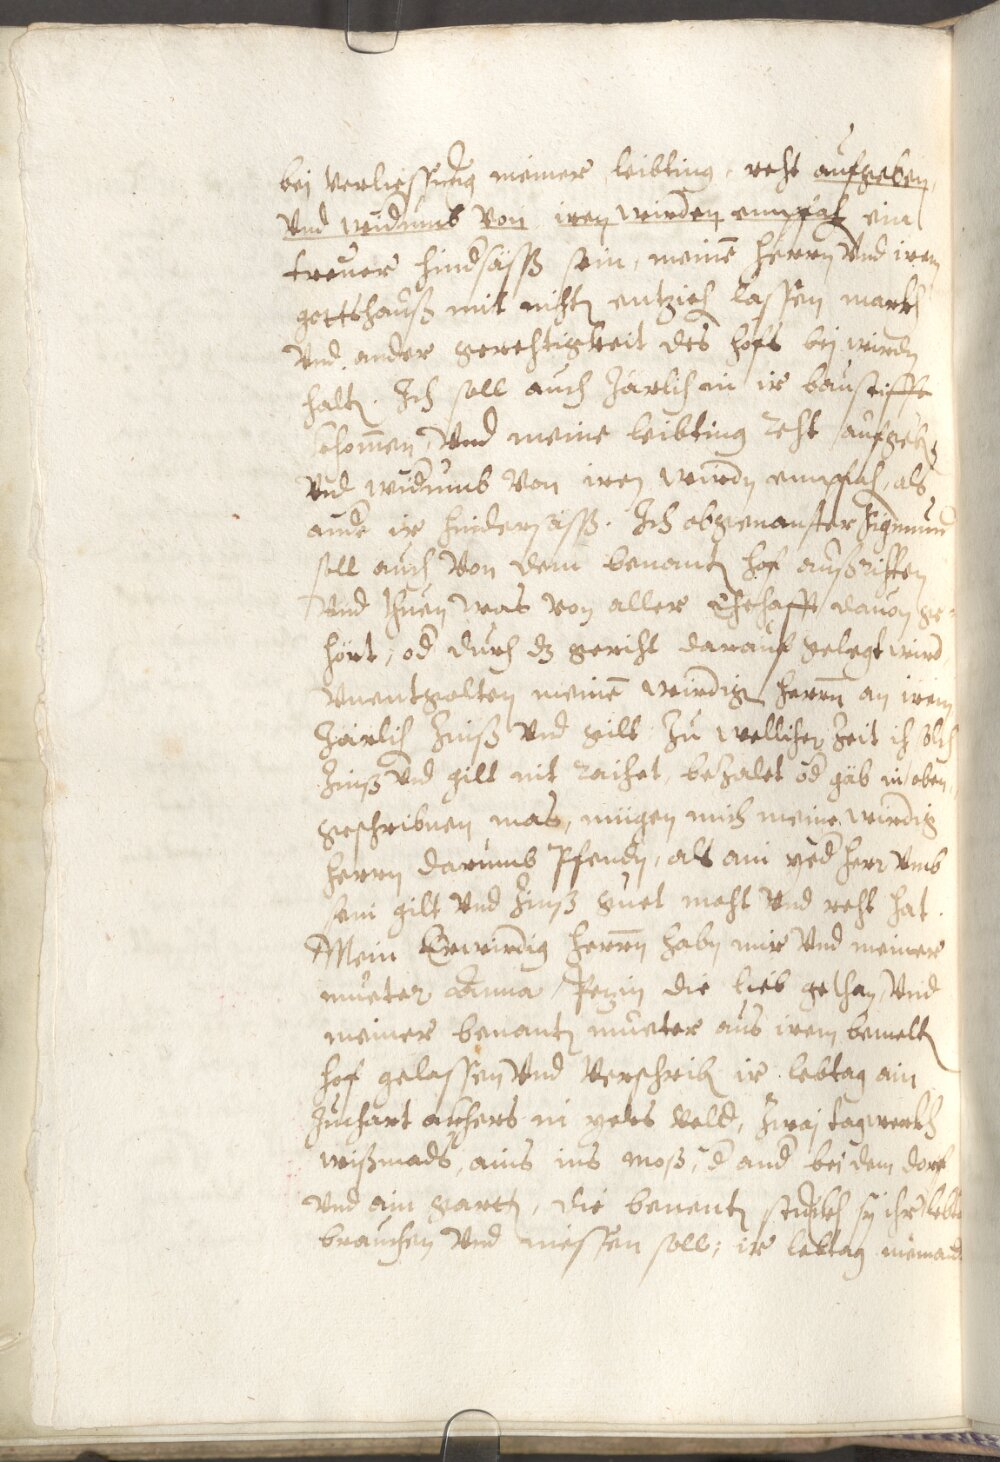 bej verliessung meiner leibting, reht aufgeben,
Vnd widrumb von iren wirden empfah ein
treuer hindsäss sein, meinē herrn Vnd irem
gottshauß mit nichtē entzieh lassen markh
Vnd ander gerechtigkeit des hofs bej wirdn
haltē. Ich soll auch Järlich in ir baustifft
khomen, Vnd meine leibting reht aufgebē
Vnd widrumb von iren wirdn empfah, als
andr ir hindersäss. Ich obgenanter Sigmund
soll auch von dem benantē hof außrichten
Vnd thuen was von aller Ehehafft dauon ge-
hört, od durch dz gericht darauf gelegt wird
Vnentgolten meinē wirdig herrn an irem
Järlich Zinß Vnd gilt Zu wellicher Zeit ich solch
Zinß Vnd gilt nit raichet, bezalet od gäb in oben
geschribnen mas, mügen mich meine wirdig
herrn darumb Pfendn, als ain yed herr Vmb
sein gilt Vnd Zinß guet macht Vnd reht hat.
Mein Erwirdig herrn habn mir Vnd meiner
mueter Anna die lieb gethan, Vnd
meiner benantē mueter aus irem bemeltē
hof gelassen Vnd verschribē ir lebtag ain
Juchart akhers in veld, Zwaj tagwerkh
wißmads, ains ins moß, d and bei dem dorf
Vnd ain gartē, die benentē stuckh sy ihr lebtag
brauchen Vnd niessen soll, ir lebtag niemand